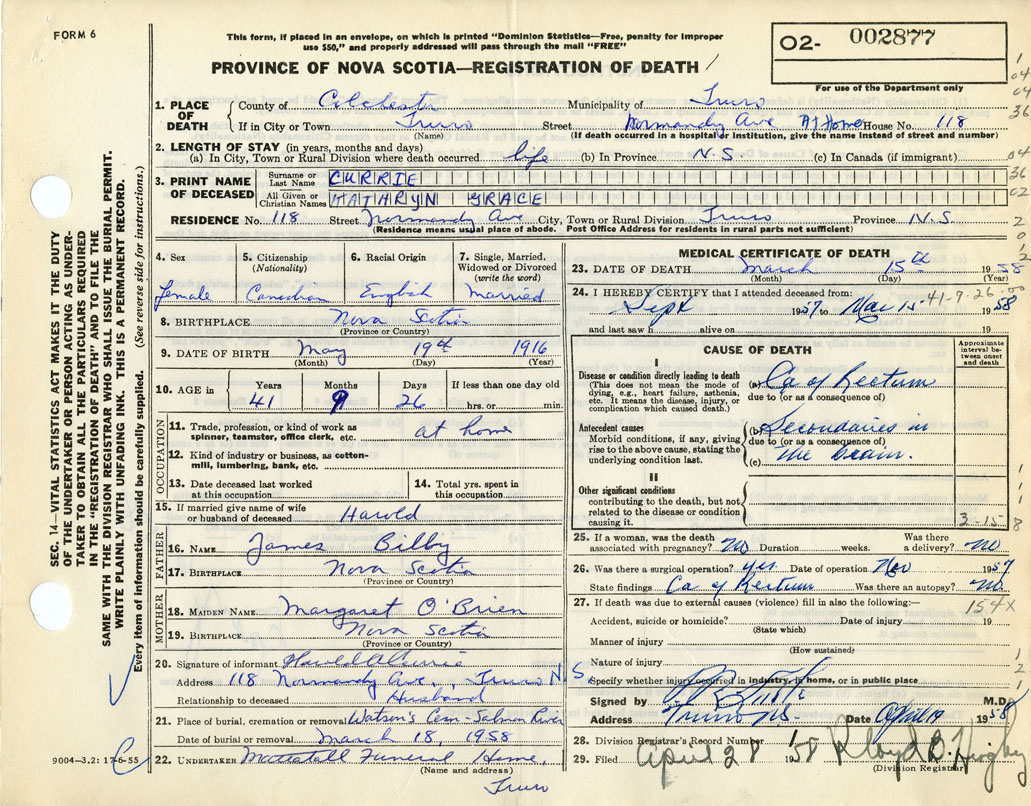 FORM 6
This form, if placed in an envelope, on which is printed "Dominion Statistics—Free, penalty for improper
use $50," and properly addressed will pass through the mail "FREE"
O2- 002877
PROVINCE OF NOVA SCOTIA—REGISTRATION OF DEATH
For use of the Department only
1. PLACE OF DEATH { County of Colchester Municipality of Truro
If in City or Town Truro Street Normandy Ave At Home House No. 118
(Name) (If death occurred in hospital or institution, give the name instead of street and number)
2. LENGTH OF STAY (in years, months and days)
(a) In City, Town or Rural Division where death occurred life (b) In Province N.S. (c) In Canada (if immigrant)
3. PRINT NAME OF DECEASED
Surname or Last Name } CURRIE
All Given or Christian Names } KATHRYN GRACE
RESIDENCE No. 118 Street Normandy Ave City, Town or Rural Division Truro Province N.S.
(Residence means usual place of abode. Post Office Address for residents in rural parts not sufficient)
4. Sex
female
5. Citizenship
(Nationality)
Canadian
6. Racial Origin
English
7. Single, Married,
Widowed or Divorced
(write the word)
Married
8. BIRTHPLACE Nova Scotia
(Province or Country)
9. DATE OF BIRTH May 19th 1916
(Month) (Day) (Year)
10. AGE in Years Months Days If less than one day old
41 9 26 hrs. or min.
OCCUPATION
11. Trade, profession, or kind of work as
spinner, teamster, office clerk, etc. at home
12. Kind of industry or business, as cotton-
mill, lumbering, bank, etc.
13. Date deceased last worked
at this occupation
14. Total yrs. spent in
this occupation
15. If married give name of wife
or husband of deceased Harold
FATHER
16. NAME James Bilby
17. BIRTHPLACE Nova Scotia
(Province or Country)
MOTHER
18. MAIDEN NAME Margaret O'Brien
19. BIRTHPLACE Nova Scotia
(Province or Country)
20. Signature of informant Harold A Currie
Address 118 Normandy Ave., Truro N.S.
Relationship to deceased Husband
21. Place of burial, cremation or removal Watson's Cem - Salmon River
Date of burial or removal March 18, 1958
22. UNDERTAKER Mattatall Funeral Home,
(Name and address)
Truro
MEDICAL CERTIFICATE OF DEATH
23. DATE OF DEATH March 15th 1958
(Month) (Day)
24. I HEREBY CERTIFY that I attended deceased from:
41-9-26-00
Sept 1957 to Mar 15 1958
and last saw h alive on 19
CAUSE OF DEATH
Approximate
interval be-
tween onset
and death
I
Disease or condition directly leading to death
(This does not mean the mode of
dying, e.g., heart failure, asthenia,
etc. It means the disease, injury, or
complication which caused death.)
(a) Ca of Rectum
due to (or as a consequence of)
Antecedent causes
Morbid conditions, if any, giving
rise to the above cause, stating the
underlying condition last.
(b) Secondaries in
due to (or as a consequence of)
(c) the brain.
II
Other significant conditions
contributing to the death, but not
related to the disease or condition
causing it.
3-15
25. If a woman, was the death
associated with pregnancy? No Duration weeks. Was there
a delivery? no
26. Was there a surgical operation? yes. Date of operation Nov 1957
State findings Ca of Rectum Was there an autopsy? no
27. If death was due to external causes (violence) fill in also the following:—
154X
Accident, suicide or homicide? Date of injury 19
(State which)
Manner of injury
(How sustained)
Nature of injury
Specify whether injury occurred in industry, in home, or in public place
Signed by M.D.
Address Truro NS. Date April 19 1958
28. Division Registrar's Record Number
29. Filed April 28 1958
(Division Registrar)
SEC. 14—VITAL STATISTICS ACT MAKES IT THE DUTY
OF THE UNDERTAKER OR PERSON ACTING AS UNDER-
TAKER TO OBTAIN ALL THE PARTICULARS REQUIRED
IN THE "REGISTRATION OF DEATH" AND TO FILE THE
SAME WITH THE DIVISION REGISTRAR WHO SHALL ISSUE THE BURIAL PERMIT.
WRITE PLAINLY WITH UNFADING INK. THIS IS A PERMANENT RECORD.
Every item of information should be carefully supplied. (See reverse side for instructions.)
9004—3.2: 17-6-55
1
04
04
36
04
36
02
2
0
1
2
1
1
1
8
1
2
1